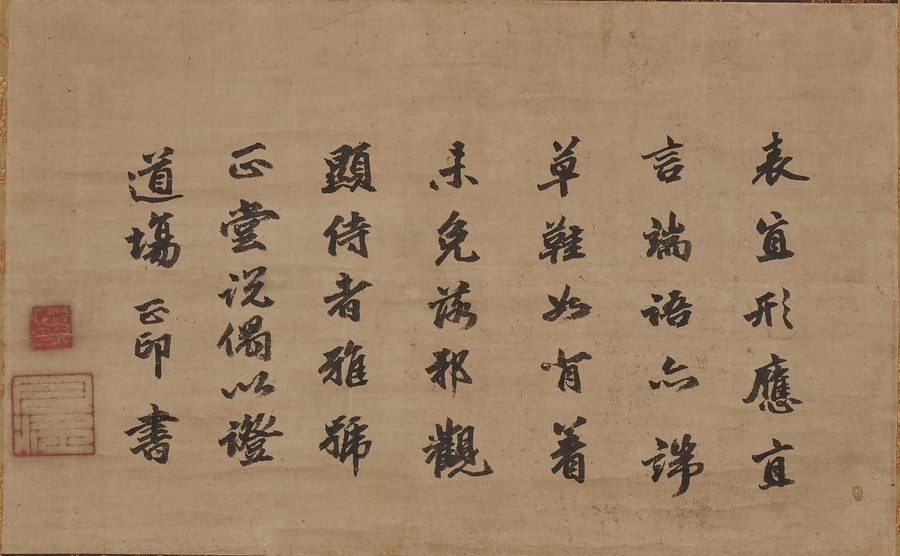 表直形應直
言端語亦諦
草鞋如肯着
未免落邪觀
顯侍者雅號
正堂説偈以證
道場 正印書